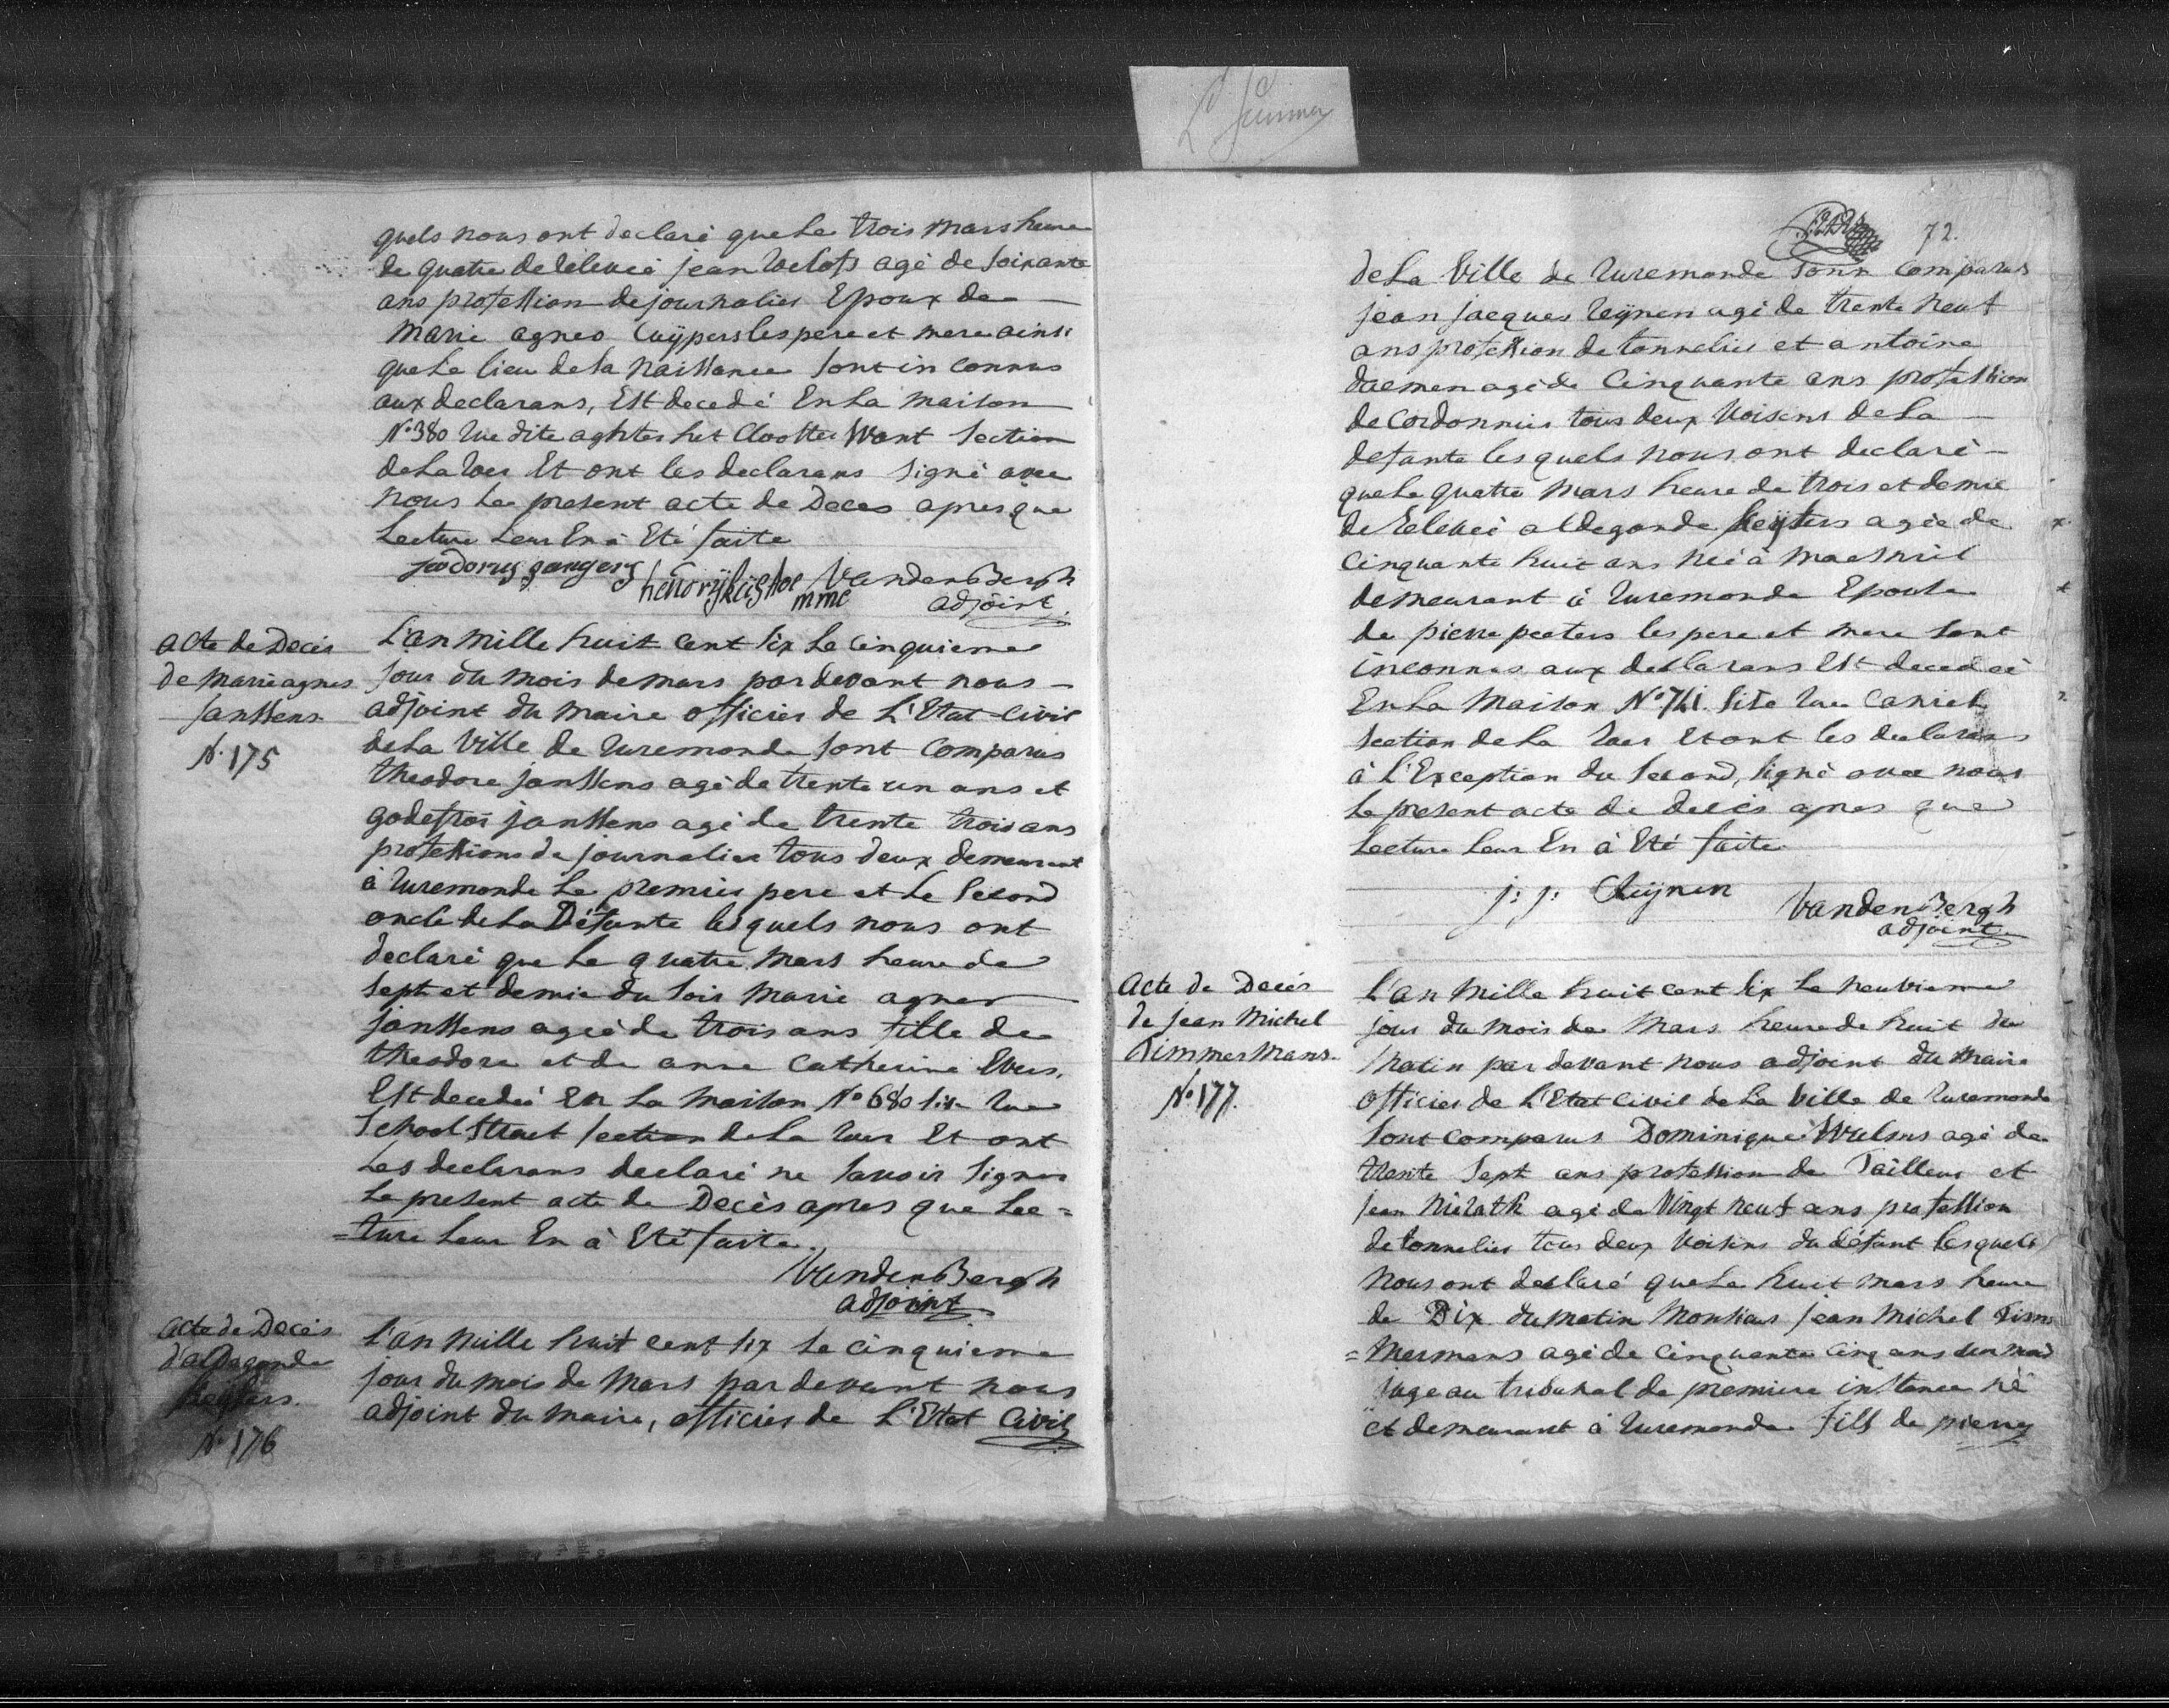 quels nous ont declaré que le trois mars heure
de quatre de relevée jean Welots agé de soixante
ans profession de journalier Epoux de
marie agnes Cuÿpers les pere et mere ainsi
que le lieu de sa naissance sont inconnus
aux declarans, Est decedé En la maison
N.° 380 rue dite aghter het Clooster Want section
de la roer Et ont les declarans signé avec
nous le present acte de Deces apres que
Lecture Leur En à Eté faite
VandenBergh
adjoint.
acte de Decés
de marie agnes
janssens
N. 175
L'an mille huit cent six le cinquieme
jour du mois de mars par devant nous
adjoint du maire officier de L'Etat Civil
de la Ville de ruremonde sont comparus
theodore janssens agé de trente un ans et
godefroi janssens agé de trente trois ans
professions de journalier tous deux demeurant
à ruremonde le premier pere et le second
oncle de la Défunte lesquels nous ont
declaré que le quatre mars heure de
sept et demie du soir marie agnes
janssens agée de trois ans fille de
theodore et de anne Catherine Evers.
Est decedée En la maison N.° 680 sise rue
School Straet section de la roer Et ont
Les declarans declaré ne savoir signer
le present acte de Decès apres que Lec=
=ture leur En à Eté faite.
VandenBergh
adjoint.
acte de Decés
d'aldegonde
N.° 176
L'an mille huit cent six le cinquieme
jour du mois de mars par devant nous
adjoint du maire, officier de L'Etat Civil
72.
de la Ville de ruremonde sont comparus
jean jacques reÿnen agé de trente neuf
ans profession de tonnelier et antoine
daemen agé de Cinquante ans profession
de cordonnier tous deux voisins de la
defunte lesquels nous ont declaré
que le quatre mars heure de trois et demie
de relevée aldegonde agée de
cinquante huit ans née à maesniel
demeurant à ruremonde Epouse
de pierre peeters les pere et mere sont
inconnus aux declarans Est decedée
En la maison N.° 741. sise rue
section de la roer Et ont les declarans
à L'Exception du second, signé avec nous
le present acte de decés apres que
Lecture leur En à Eté faite
j: j: Reÿnen
VandenBergh
adjoint.
Acte de Decés
de jean Michel
Timmermans.
N.° 177.
L'an mille huit cent six le neuvieme
jour du mois de mars heure de huit du
matin par devant nous adjoint du maire
officier de L'Etat civil de la Ville de ruremonde
sont comparus Dominique agé de
trente sept ans profession de Tailleur et
jean agé de Vingt neuf ans profession
de tonnelier tous deux voisins du défunt lesquels
nous ont declaré que le huit mars heure
de Dix du matin Monsieur jean michel Tim
=mermans agé de cinquante cinq ans
juge au tribunal de premiere instance né
et demeurant à ruremonde fils de pierre